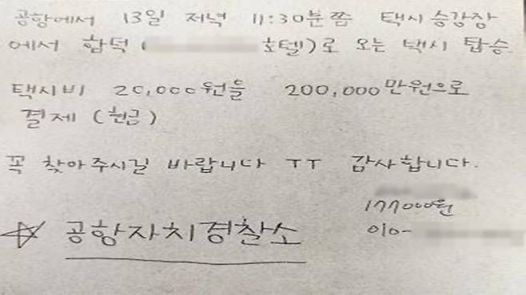 공항에서 13일 저녁 11:30분쯤 택시 승강장
에서 함덕 ( 호텔)로 오는 택시 탑승
택시비 20,000원을 200,000만원으로
결제 (현금)
꼭 찾아주시길 바랍니다 TT 감사합니다.
177000원
☆ 공항자치경찰소 010-